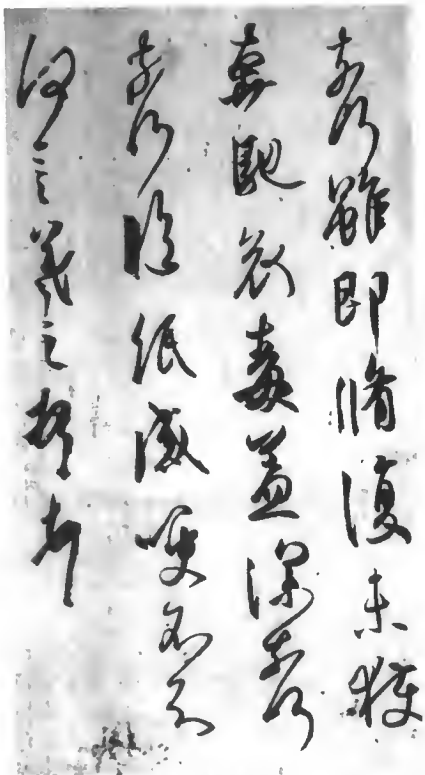 奈何雖即脩復未獲
奔馳哀毒益深奈何
奈何臨紙感哽不知
何言羲之頓首